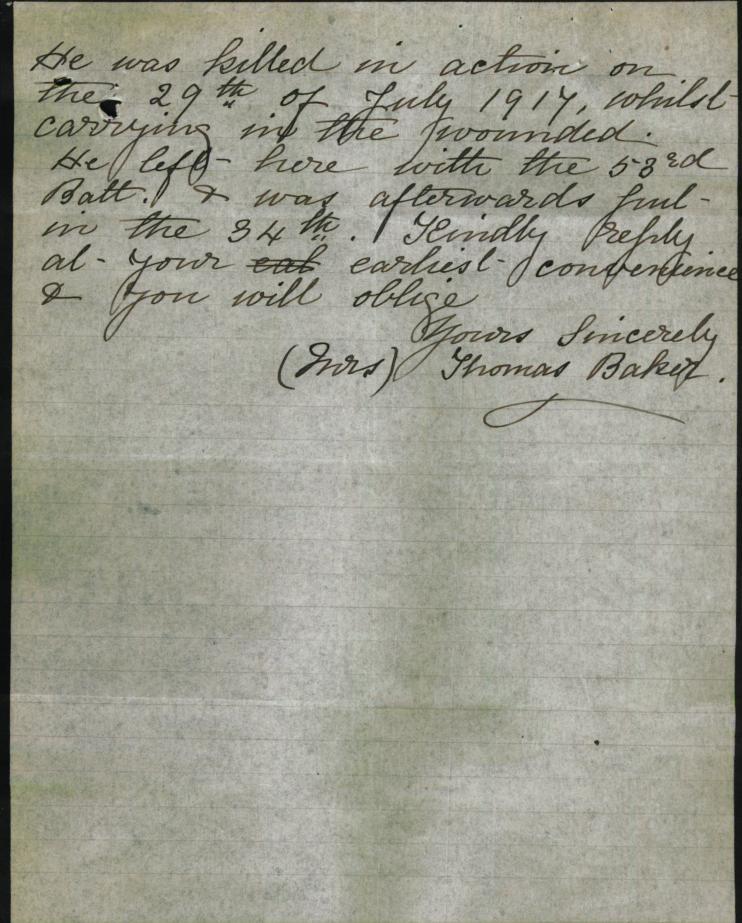 He was killed in action on
the 29th of July 1917, whilst
carrying in the wounded.
He left here with the 53rd
Batt. & was afterwards put
in the 34th. Kindly reply
at your eal earliest convenience
& you will oblige
Yours Sincerely
(Mrs) Thomas Baker.